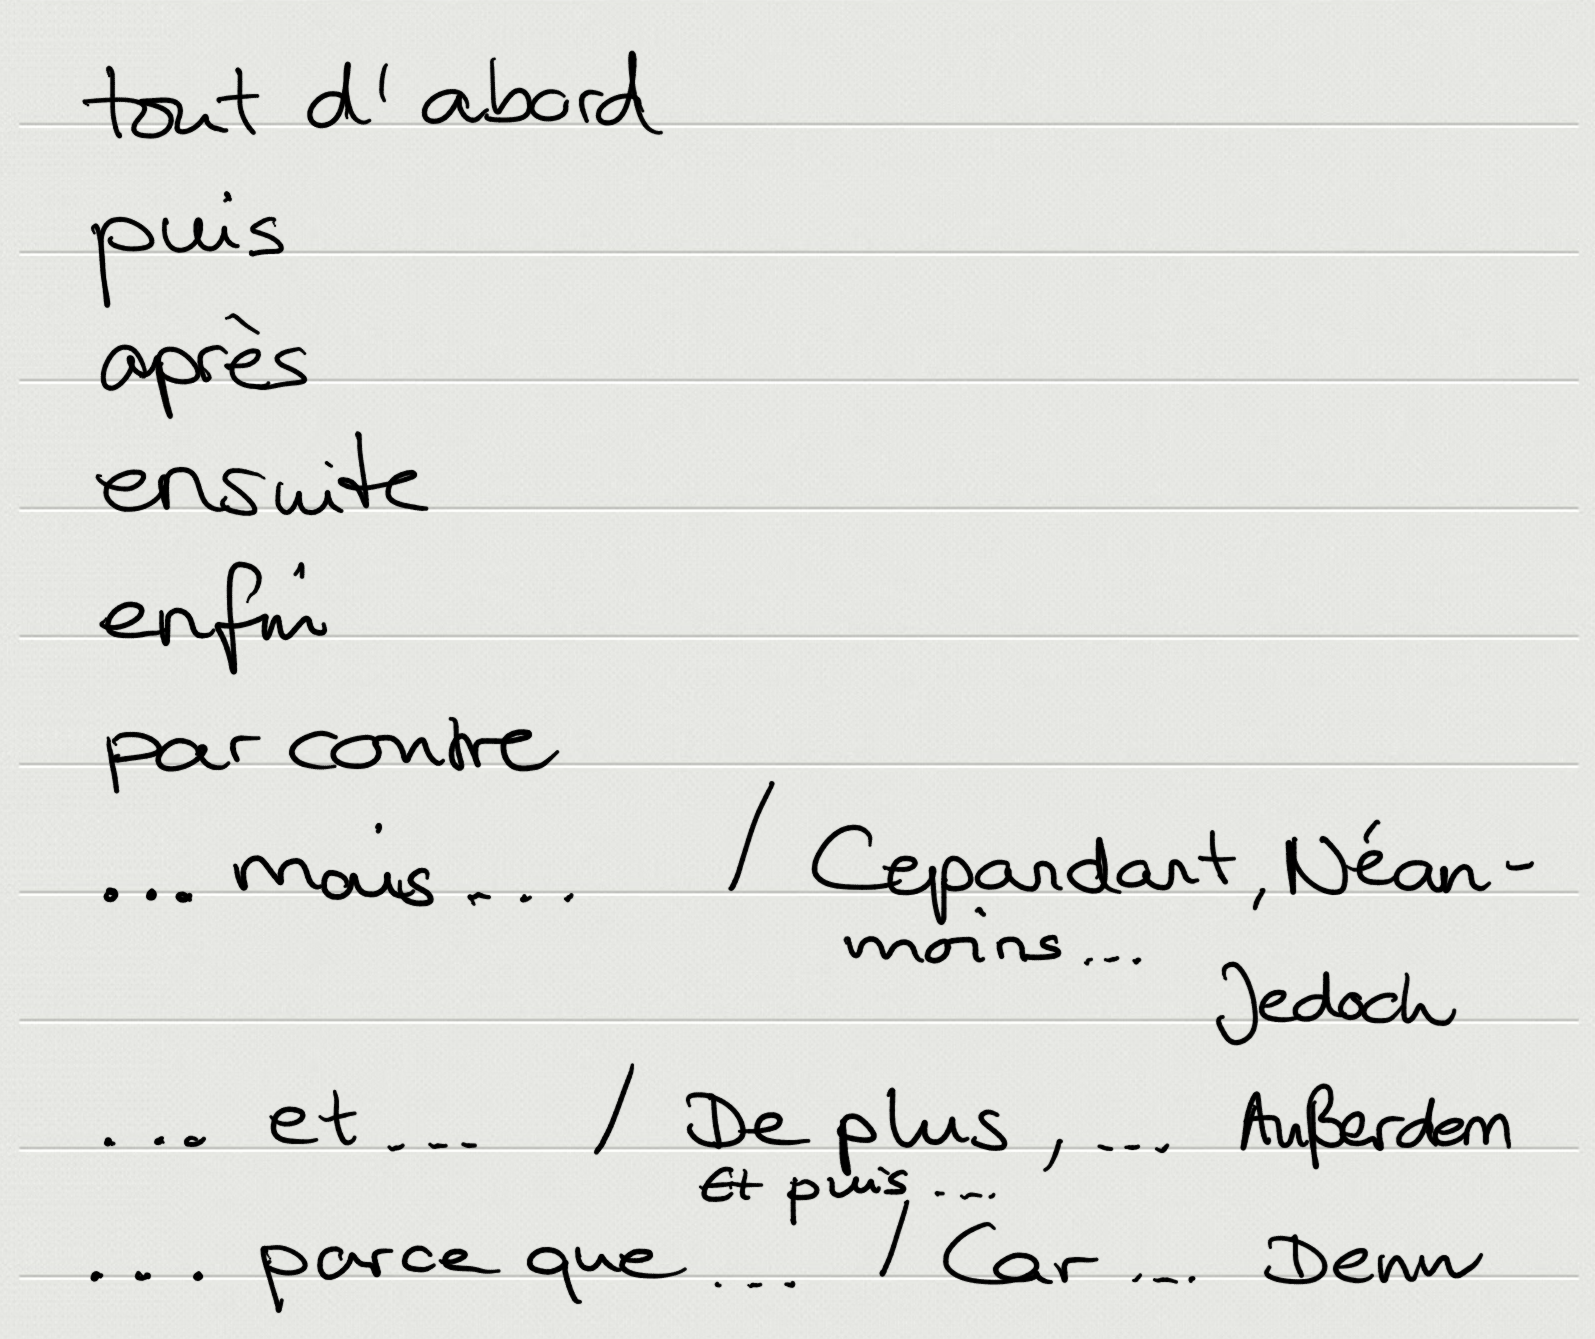 tout d'abord
puis
après
ensuite
enfin
par contre
... mais ... / Cepandant, Néan-
moins ...
Jedoch
... et ... / De plus, ... Außerdem
Et puis ...
... parce que ... / Car ... Denn